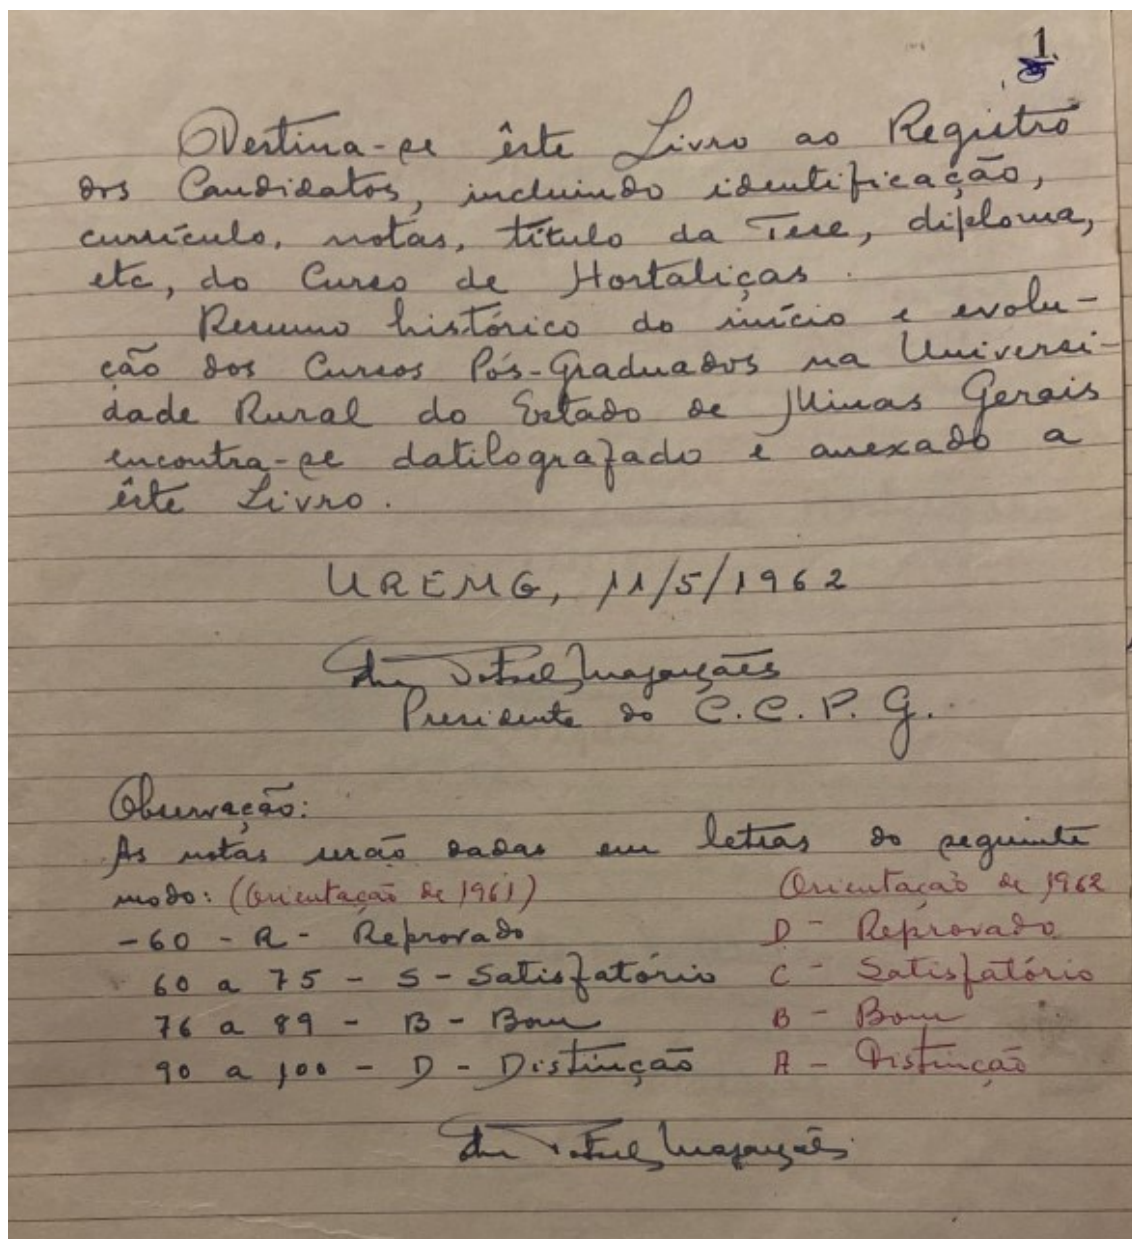 1.
Destina-se êste Livro ao Registro
dos Candidatos, incluindo identificação,
currículo, notas, título da Tese, diploma,
etc, do Curso de Hortaliças.
Resumo histórico do início e evolu-
ção dos Cursos Pós-Graduados na Universi-
dade Rural do Estado de Minas Gerais
encontra-se datilografado e anexado a
êste Livro.
UREMG, 11/5/1962
Magalhães
Presidente do C.C.P.G.
Observação:
As notas serão dadas em letras do seguinte
modo: (Orientação de 1961) Orientação de 1962
-60 - R - Reprovado D - Reprovado
60 a 75 - S - Satisfatório C - Satisfatório
76 a 89 - B - Bom B - Bom
90 a 100 - D - Distinção A - Distinção
Magalhães